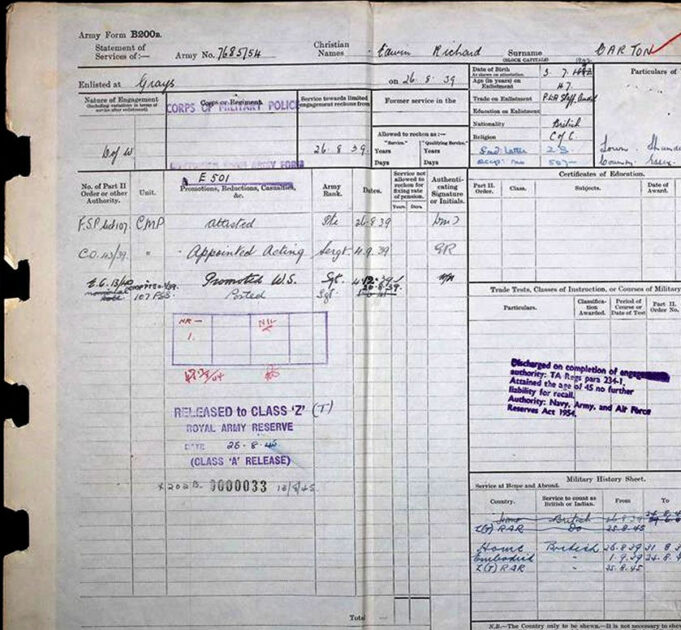 Army Form B200a.
Statement of Services of:—
Army No. 7685754
Christian Names
Edwin Richard
Surname
(BLOCK CAPITALS)
GARTON
Enlisted at Grays on 26.8.39
Date of Birth
As shown on attestation
3. 7.
Age (in years) on Enlistment
47
Trade on Enlistment
Education on Enlistment
Nationality British
Religion C of E.
507
Particulars of
Nature of Engagement
(including variations in terms of service after enlistment)
D of W
Corps or Regiment
CORPS OF MILITARY POLICE
Service towards limited engagement reckons from
26.8.39.
Former service in the
Allowed to reckon as:—
"Service." "Qualifying Service."
Years Years
Days Days
E 501
No. of Part II Order or other Authority.
Unit.
Promotions, Reductions, Casualties, &c.
Army Rank.
Dates.
Service not allowed to reckon for fixing rate of pension.
Years Days
Authenticating Signature or Initials.
F.S.P. CMP Attested Pte 26.8.39
C.O. 43/39. " Appointed Acting Sergt. 4.9.39 GR
E.G. 13/40 Promoted W.S. Sgt.
107 FSS. Posted Sgt.
NR — NIL
1.
RELEASED to CLASS 'Z' (T)
ROYAL ARMY RESERVE
DATE 25.8.45
(CLASS 'A' RELEASE)
X 202 B. 0000033 12/8/45
Total
Certificates of Education.
Part II. Order.
Class.
Subjects.
Date of Award.
Trade Tests, Classes of Instruction, or Courses of Military
Particulars.
Classification Awarded.
Period of Course or Date of Test
Part II. Order No.
Discharged on completion of
authority: TA Regs para 234-1.
Attained the age of 45 no further
liability for recall.
Authority: Navy, Army, and Air Force
Reserves Act 1954.
Military History Sheet.
Service at Home and Abroad.
Country.
Service to count as British or Indian.
From
To
Home British 26.8.39
Z(T) RAR Do 25.8.45
Home British 26.8.39 31 8
Embodied " 1.9.39 24.8.4
Z(T) RAR " 25.8.45
N.B.—The Country only to be shewn.—It is not necessary to shew